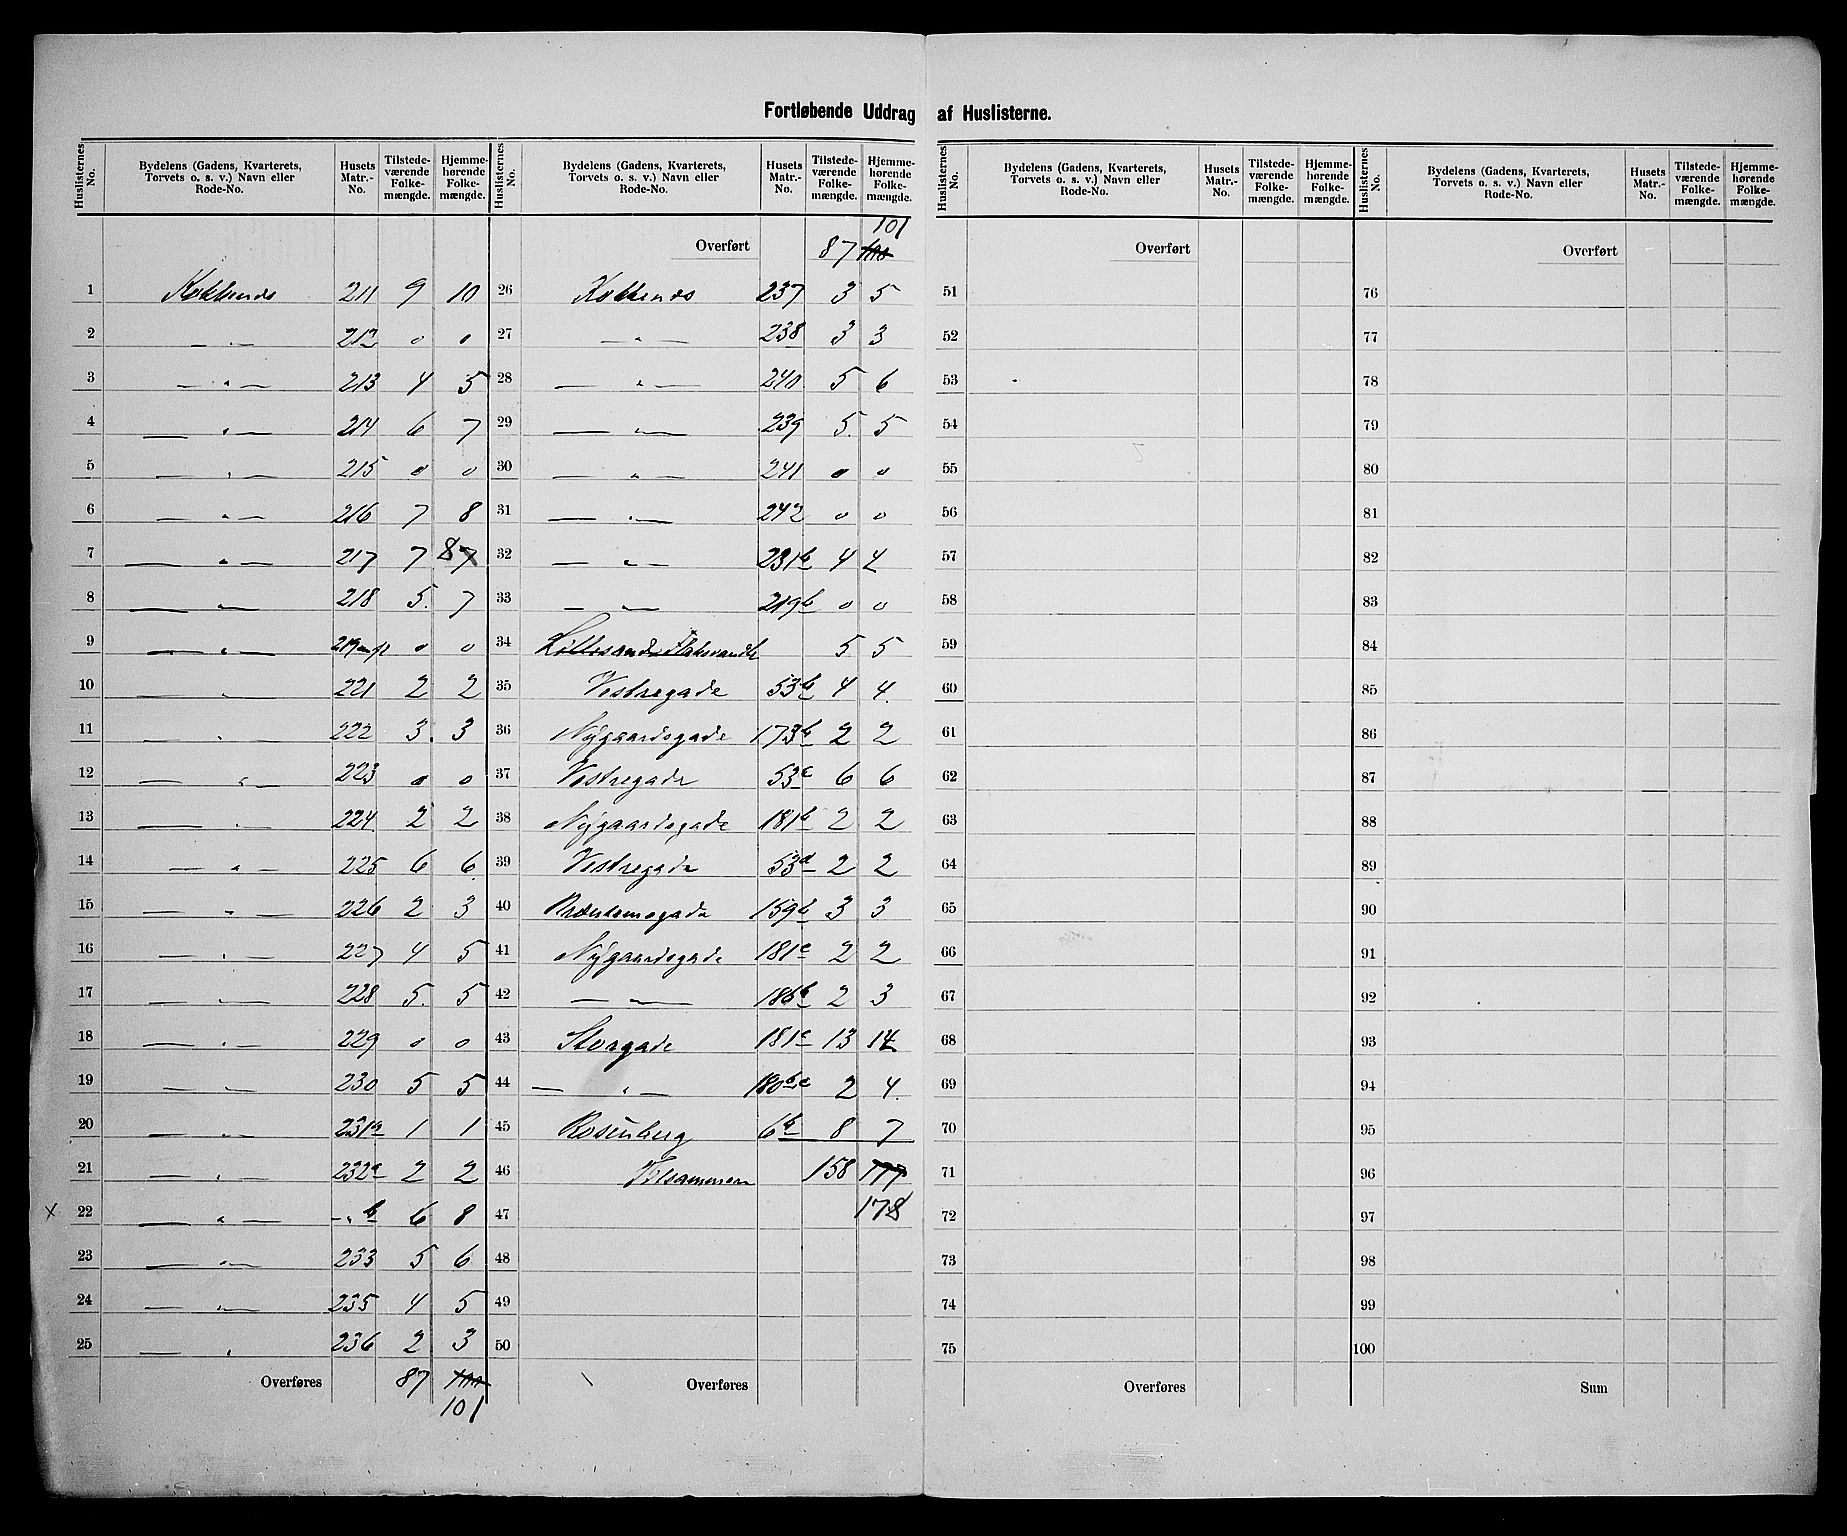 Fortløbende Uddrag af Huslisterne.
Huslisternes No. | Bydelens (Gadens, Kvarterets, Torvets o. s. v.) Navn eller Rode-No. | Husets Matr.-No. | Tilstede-værende Folke-mængde. | Hjemme-hørende Folke-mængde.
1 Kokkends 211 9 10
2 — „ — 212 0 0
3 — „ — 213 4 5
4 — „ — 214 6 7
5 — „ — 215 0 0
6 — „ — 216 7 8
7 — „ — 217 7 8 7
8 — „ — 218 5. 7
9 — „ — 219 0 0
10 — „ — 221 2 2
11 — „ — 222 3. 3
12 — „ — 223 0 0
13 — „ — 224 2 2
14 — „ — 225 6 6
15 — „ — 226 2 3
16 — „ — 227 4 5
17 — „ — 228 5. 5
18 — „ — 229 0 0
19 — „ — 230 5 5
20 — „ — 231a 1 1
21 — „ — 232a 2 2
x 22 — „ — -„- b 6 8
23 — „ — 233 5 6
24 — „ — 235 4 5
25 — „ — 236 2 3
Overføres 87 100
101
Huslisternes No. | Bydelens (Gadens, Kvarterets, Torvets o. s. v.) Navn eller Rode-No. | Husets Matr.-No. | Tilstede-værende Folke-mængde. | Hjemme-hørende Folke-mængde.
101
Overført 87 100
26 Kokkends 237 3 5
27 — „ — 238 3 3
28 — „ — 240 5 6
29 — „ — 239 5. 5
30 — „ — 241 0 0
31 — „ — 242 0 0
32 — „ — 231b 4 4
33 — „ — 219b 0 0
34 5 5
35 Vestregade 53b 4 4.
36 Nygaardsgade 173b 2 2
37 Vestregade 53c 6 6
38 Nygaardsgade 181b 2 2
39 Vestregade 53d 2 2
40 Præstensgade 159b 3 3
41 Nygaardsgade 181c 2 2
42 — „ — 186b 2 3
43 Storgade 181e 13 14
44 — „ — 180 2 4.
45 Rosenberg 6b 8 7
46 Tilsammen 158 177
47 178
48
49
50
Overføres
Huslisternes No. | Bydelens (Gadens, Kvarterets, Torvets o. s. v.) Navn eller Rode-No. | Husets Matr.-No. | Tilstede-værende Folke-mængde. | Hjemme-hørende Folke-mængde.
Overført
51
52
53
54
55
56
57
58
59
60
61
62
63
64
65
66
67
68
69
70
71
72
73
74
75
Overføres
Huslisternes No. | Bydelens (Gadens, Kvarterets, Torvets o. s. v.) Navn eller Rode-No. | Husets Matr.-No. | Tilstede-værende Folke-mængde. | Hjemme-hørende Folke-mængde.
Overført
76
77
78
79
80
81
82
83
84
85
86
87
88
89
90
91
92
93
94
95
96
97
98
99
100
Sum